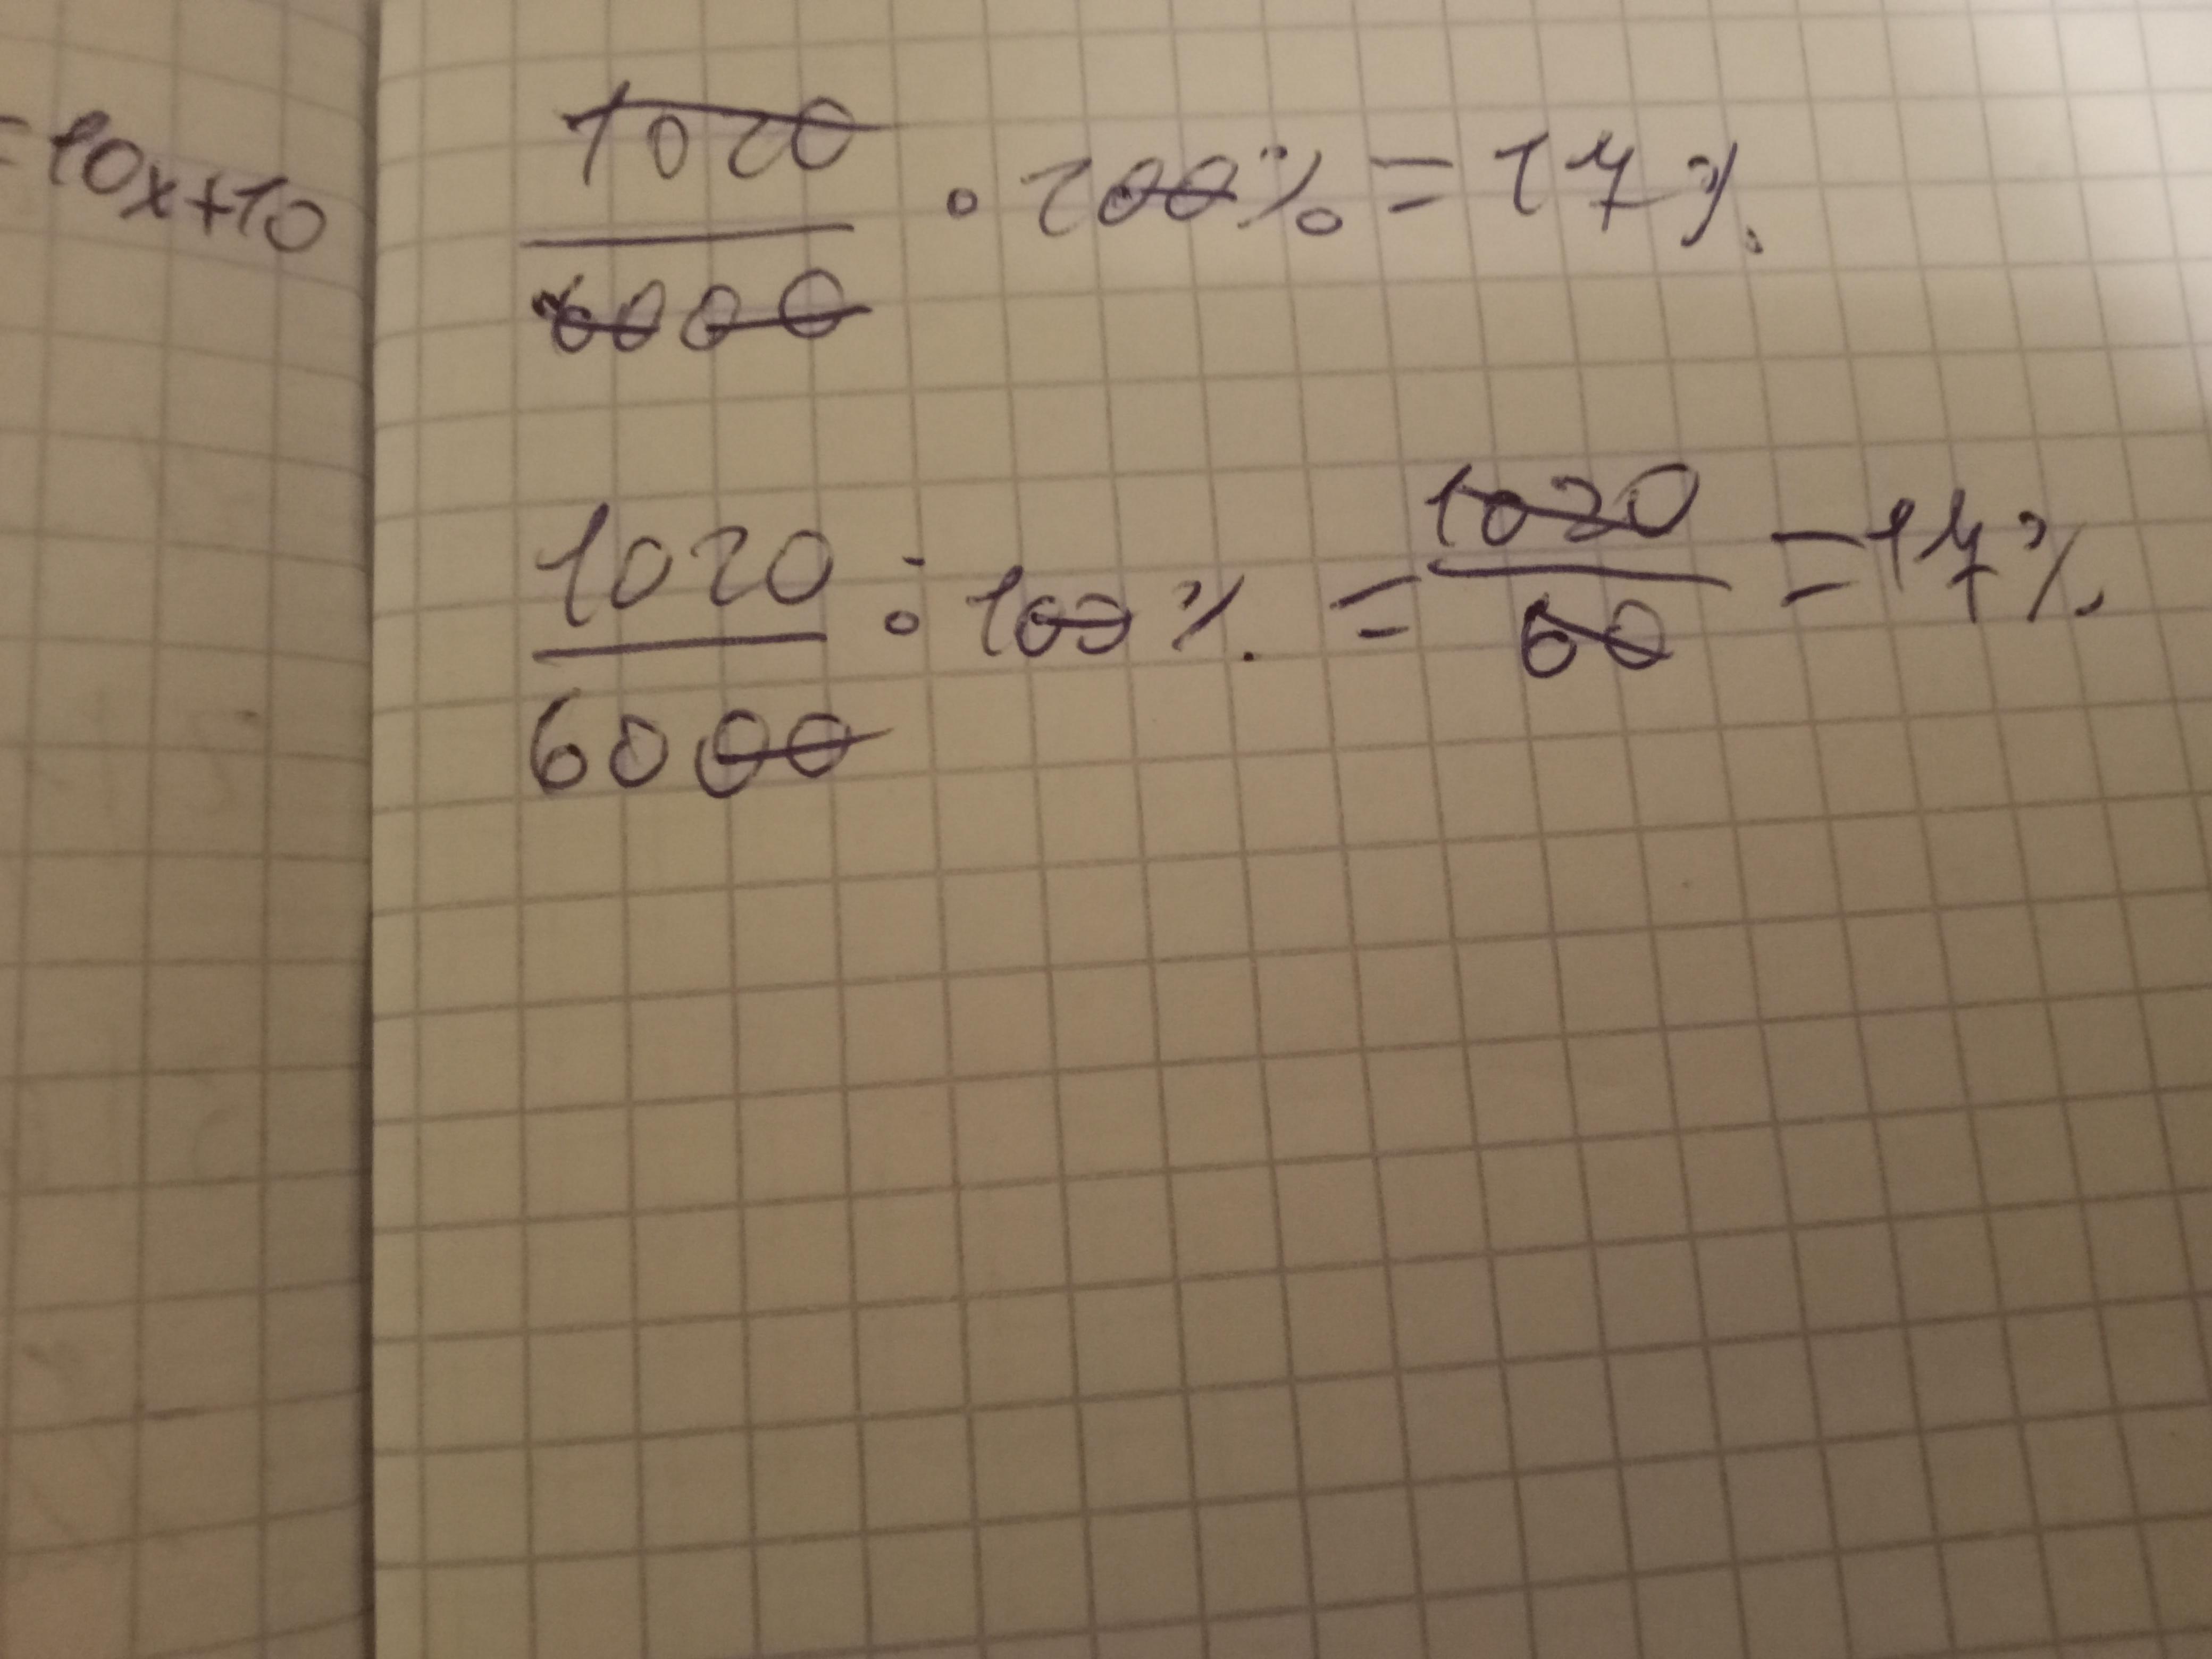 = 10x+10
1020/6000 · 100% = 17%
1020/6000 : 100% = 1020/60 = 17%